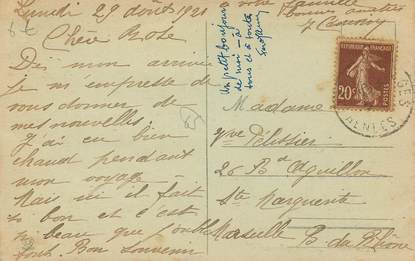 Lundi 29 août 1921
Chère Rose
Dès mon arrivée
je m'empresse de
vous donner de
mes nouvelles.
J'ai eu bien
chaud pendant
mon voyage
Mais ici il fait
si bon et c'est
si beau que j'oublie
tout. Bon souvenir
votre famille
bonnes
Un petit bonjour
de moi à
tous et à toute
REPUBLIQUE FRANÇAISE
20c
POSTES
Madame
Vve Pélissier
26 Bd Aiguillon
Ste Marguerite
Marseille B. du Rhône